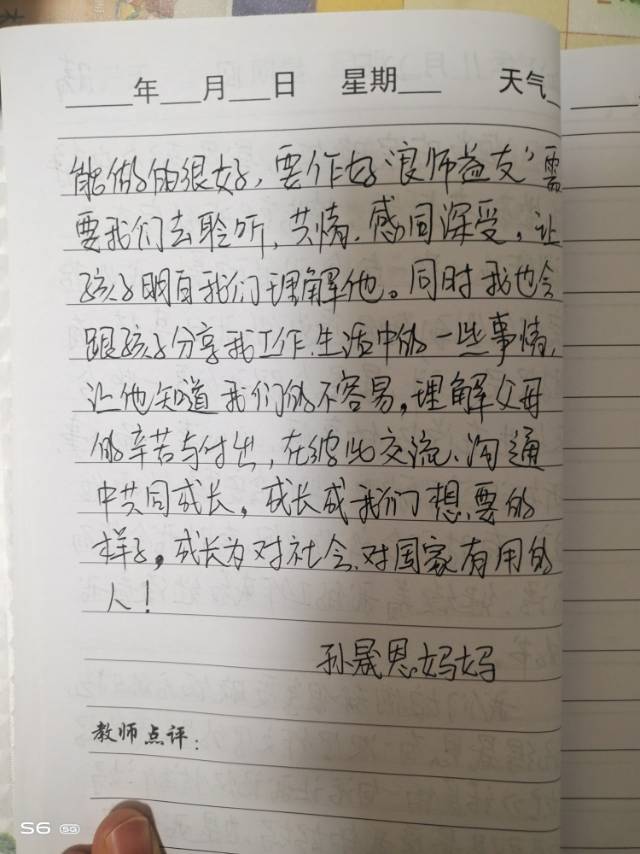 ____年___月___日 星期___ 天气_
能做的很好，要作好“良师益友”需
要我们去聆听，共情，感同深受，让
孩子明白我们理解他。同时我也会
跟孩子分享我工作、生活中的一些事情，
让他知道我们的不容易，理解父母
的辛苦与付出，在彼此交流、沟通
中共同成长，成长成我们想要的
样子，成长为对社会、对国家有用的
人！
孙晟恩妈妈
教师点评：
S6 5G